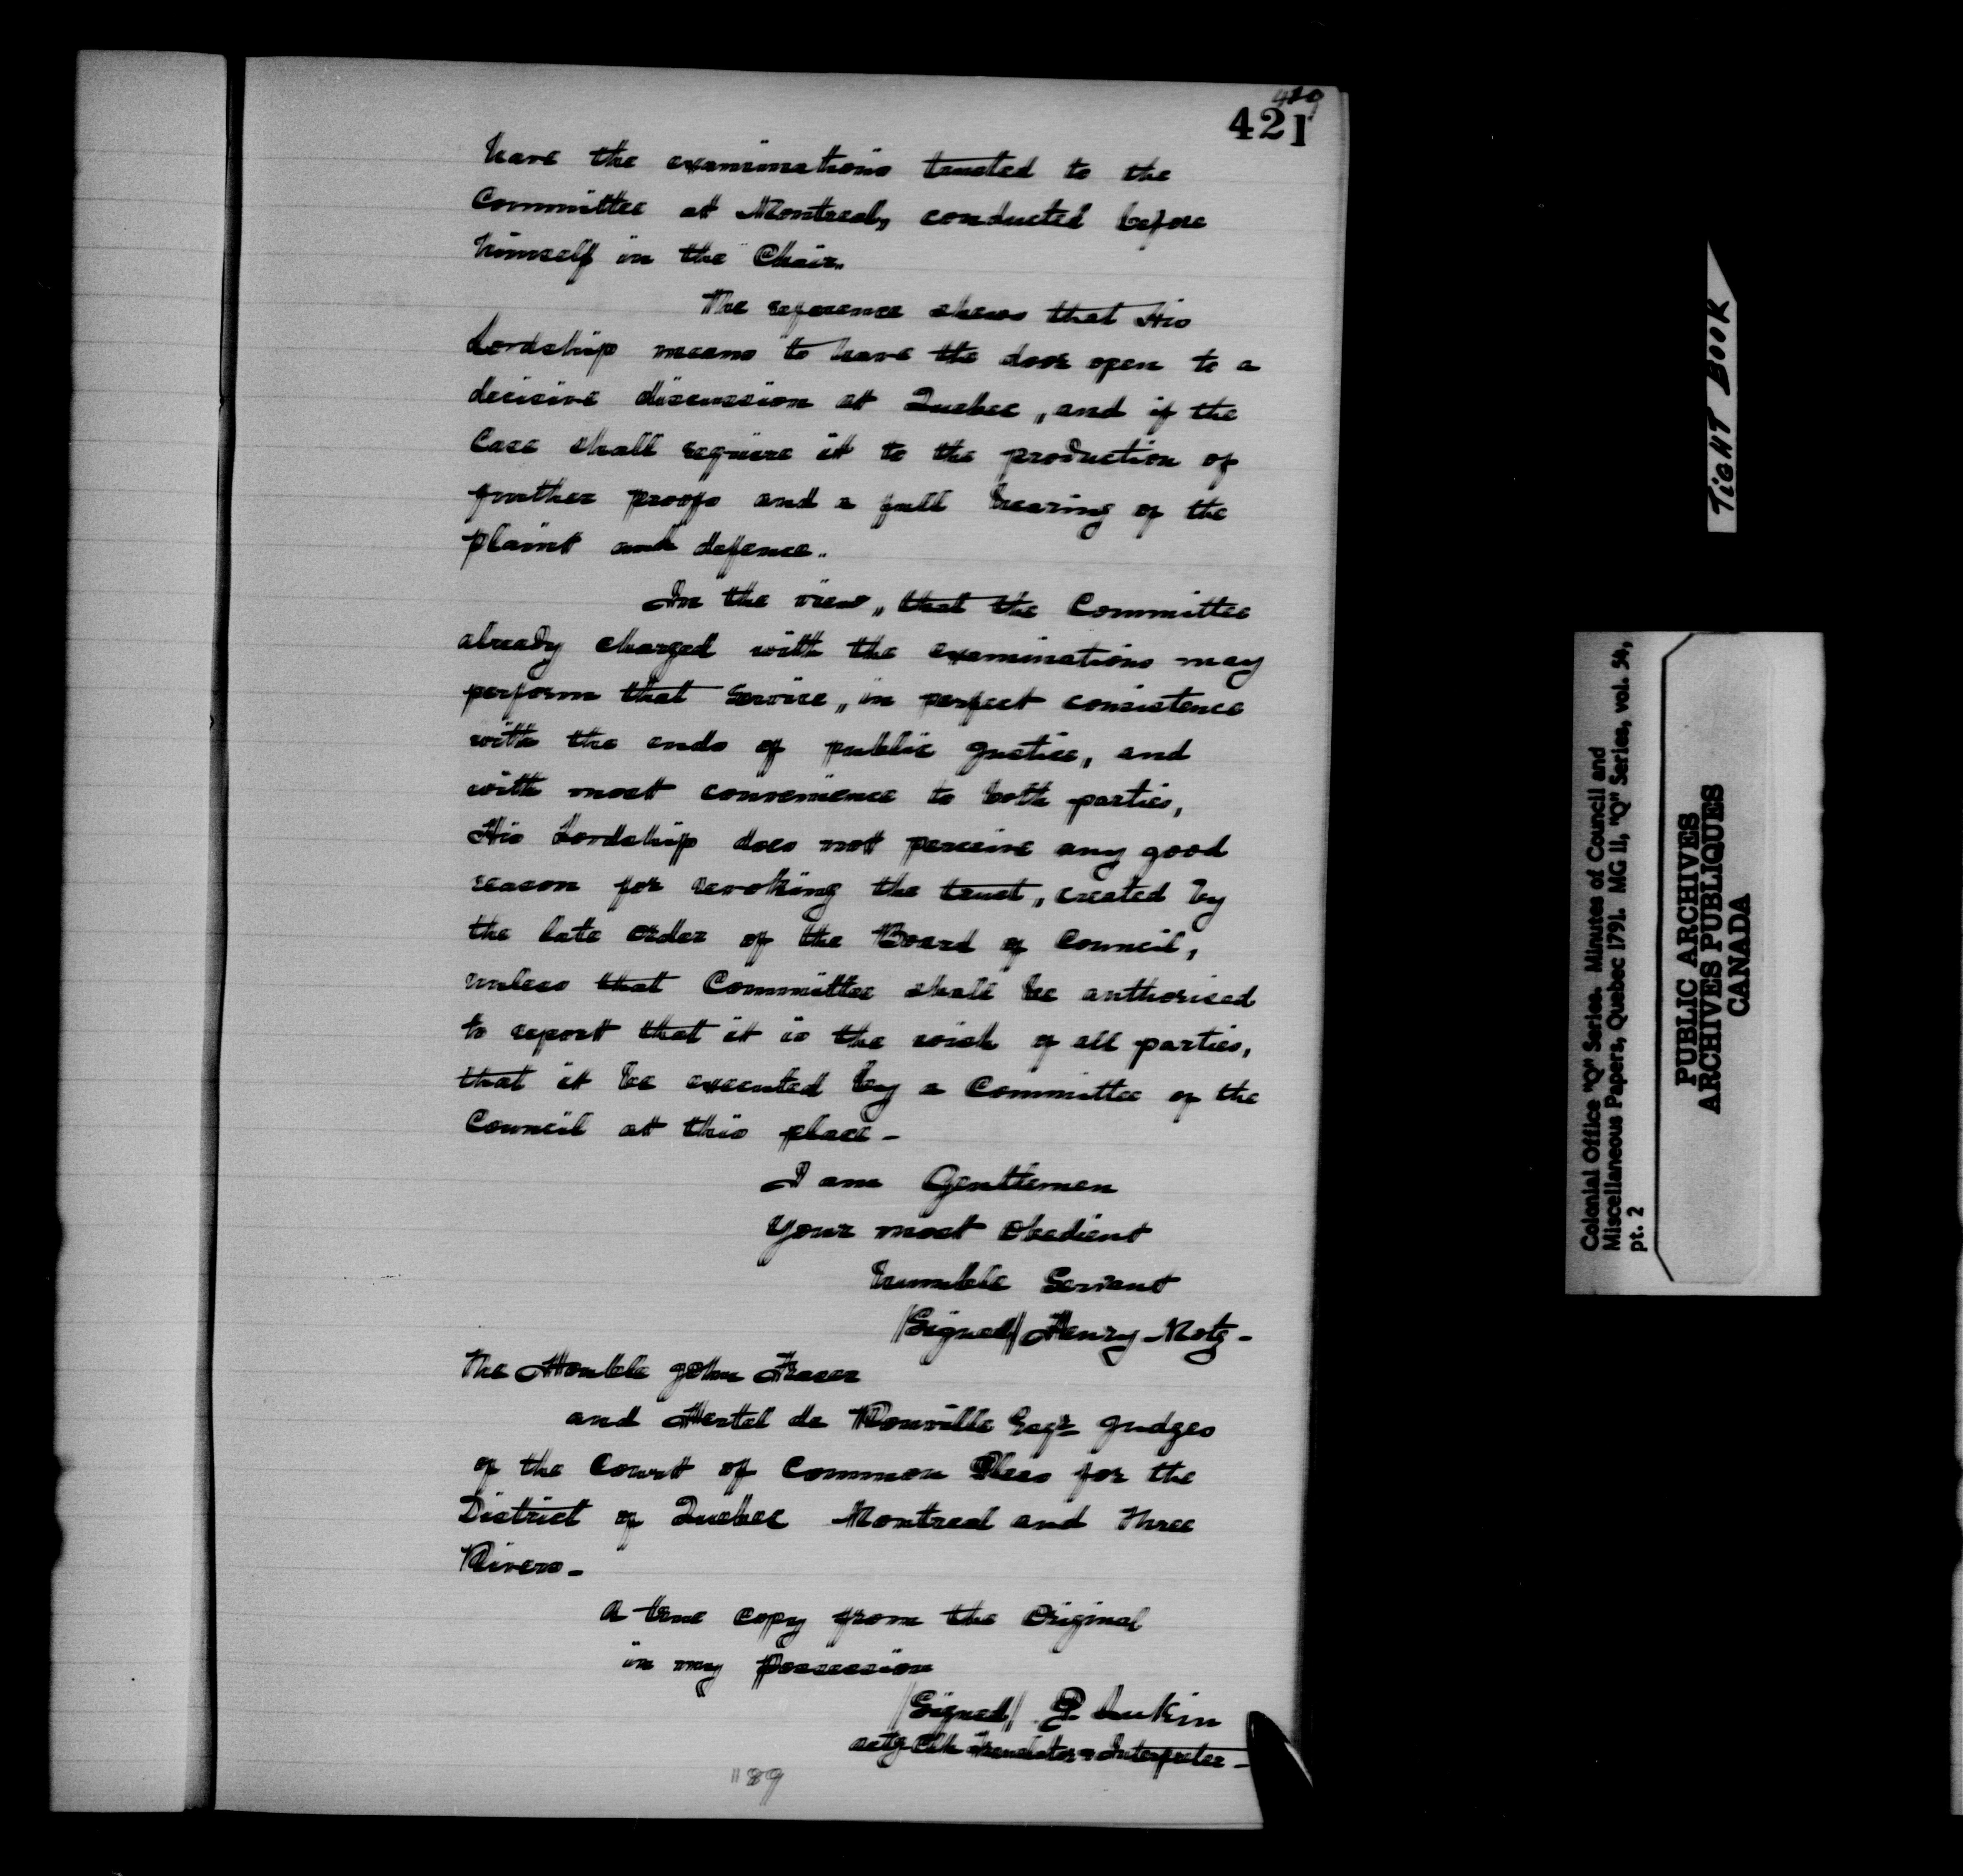 419
421
have the examinations trusted to the
Committee at Montreal, conducted before
himself in the Chair.
The reference shews that His
Lordship means to leave the door open to a
decisive discussion at Quebec, and if the
Case shall require it to the production of
further proofs and a full hearing of the
plaint and defence.
In the view, that the Committee
already charged with the examinations may
perform that Service, in perfect consistence
with the ends of public Justice, and
with most convenience to both parties,
His Lordship does not perceive any good
reason for revoking the trust, created by
the late Order of the Board of Council,
unless that Committee shall be authorised
to report that it is the wish of all parties,
that it be executed by a Committee of the
Council at this place -
I am Gentlemen
Your most Obedient
humble Servant
/Signed/ Henry Motz -
The Honble John Fraser
and Hertel de Rouville Esqrs Judges
of the Court of Common Pleas for the
District of Quebec Montreal and Three
Rivers -
A true Copy from the Original
in my Possession
/Signed/ P. Lukin
actg Clk Translator & Interpreter -
"89
TIGHT BOOK
Colonial Office "Q" Series. Minutes of Council and
Miscellaneous Papers, Quebec 1791. MG 11, "Q" Series, vol. 54,
pt. 2
PUBLIC ARCHIVES
ARCHIVES PUBLIQUES
CANADA